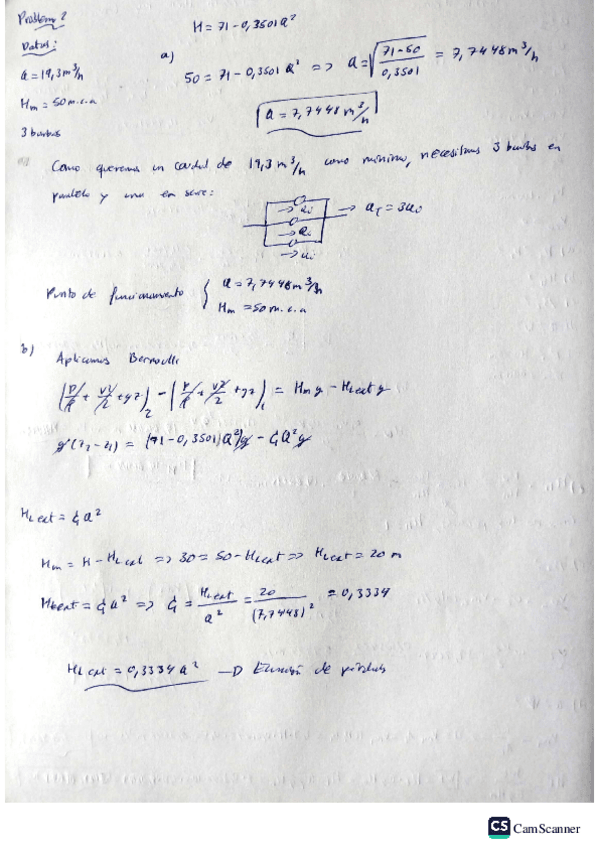 Problema 2
Datos:
Q = 19,3 m³/h
Hm = 50 m.c.a
3 bombas
H = 71 - 0,3501 Q²
a)
50 = 71 - 0,3501 Q² => Q = √((71-50)/0,3501) = 7,7448 m³/h
Q = 7,7448 m³/h
Como queremos un caudal de 19,3 m³/h como mínimo, necesitamos 3 bombas en
paralelo y una en serie:
Qi
Qi
Qi
-> QT = 3Qi
Punto de funcionamiento { Q = 7,7448 m³/h
Hm = 50 m.c.a
b) Aplicamos Bernoulli
(P/ρ + V²/2 + gz)₂ - (P/ρ + V²/2 + gz)₁ = Hm g - HLext g
g (z₂ - z₁) = (71 - 0,3501)Q²)g - ζQ²g
HLext = ζ Q²
Hm = H - HLext => 30 = 50 - HLext => HLext = 20 m
HLext = ζ Q² => ζ = HLext/Q² = 20/(7,7448)² = 0,3334
HLext = 0,3334 Q² -> de pérdidas
CS CamScanner